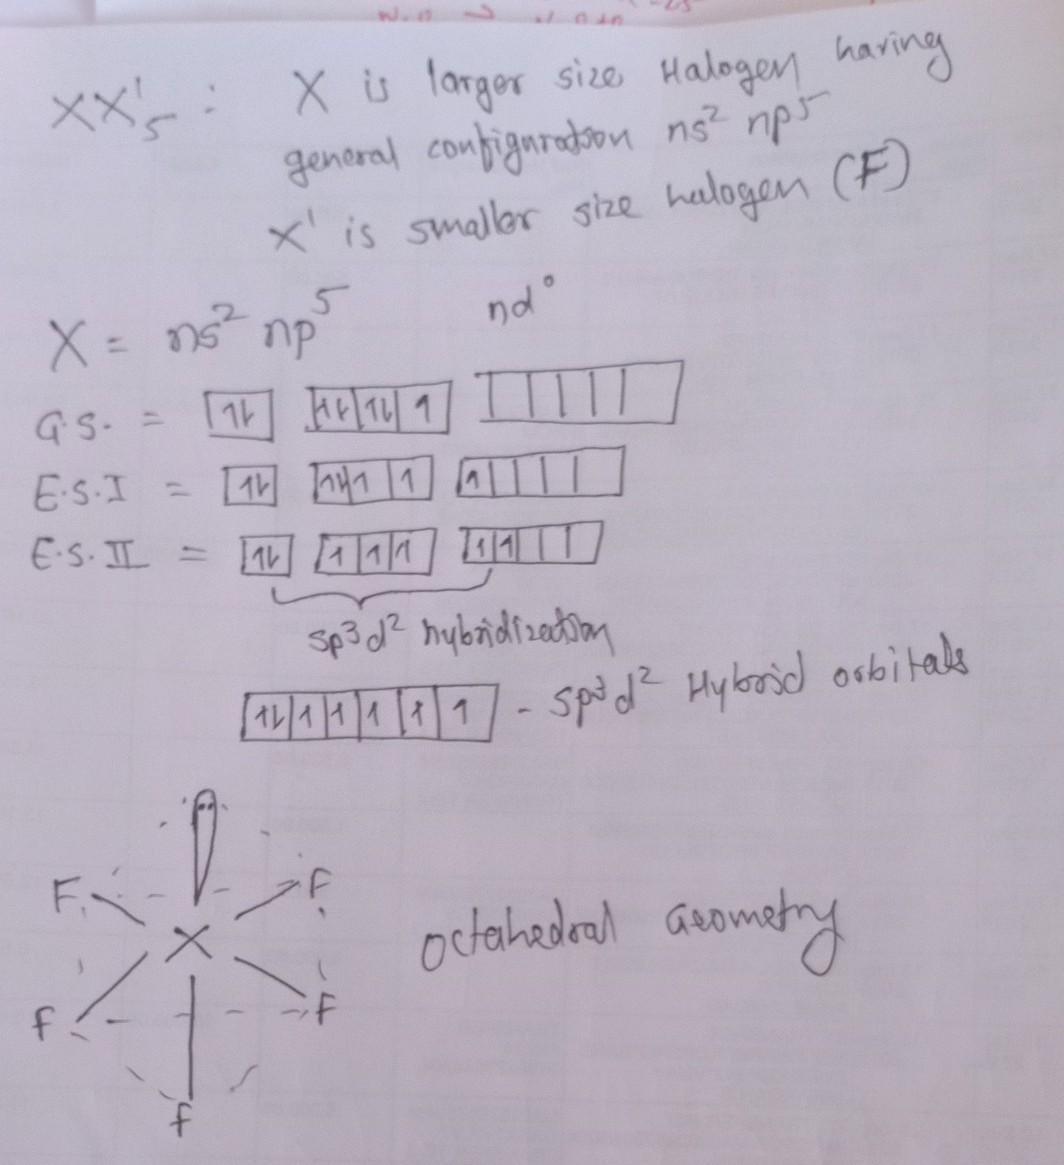 XX'₅ : X is larger size Halogen having
general configuration ns² np⁵
X' is smaller size halogen (F)
X = ns² np⁵ nd°
G.S. = 1⇂ 1⇂ 1⇂ 1
E.S.I = 1⇂ 1⇂ 1 1 1
E.S.II = 1⇂ 1 1 1 1 1
sp³d² hybridization
1⇂ 1 1 1 1 1 - sp³d² Hybrid orbitals
F F
X
Octahedral Geometry
F F
F